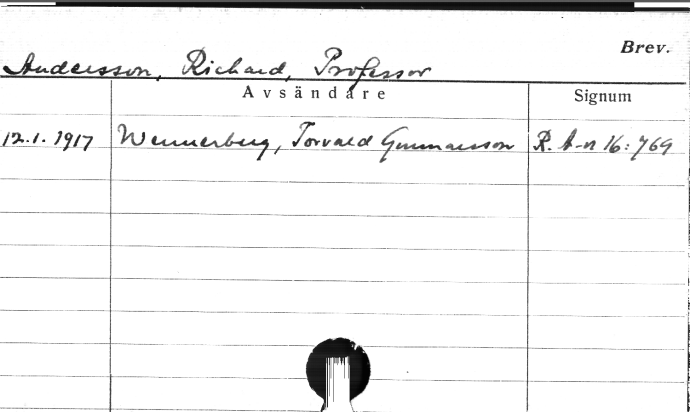 Brev.
Andersson, Richard, Professor
Avsändare Signum
12.1.1917 Wennerberg, Torvald Gunnarsson R. A-n 16:769